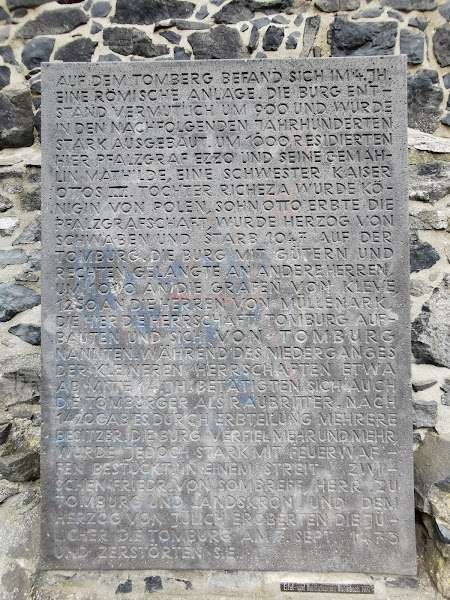 AUF DEM TOMBERG BEFAND SICH IM 4. JH.
EINE RÖMISCHE ANLAGE. DIE BURG ENT-
STAND VERMUTLICH UM 900 UND WURDE
IN DEN NACHFOLGENDEN JAHRHUNDERTEN
STARK AUSGEBAUT. UM 1000 RESIDIERTEN
HIER PFALZGRAF EZZO UND SEINE GEMAH-
LIN MATHILDE, EINE SCHWESTER KAISER
OTTOS III. TOCHTER RICHEZA WURDE KÖ-
NIGIN VON POLEN, SOHN OTTO ERBTE DIE
PFALZGRAFSCHAFT, WURDE HERZOG VON
SCHWABEN UND STARB 1047 AUF DER
TOMBURG. DIE BURG MIT GÜTERN UND
RECHTEN GELANGTE AN ANDERE HERREN,
UM AN DIE GRAFEN VON KLEVE
1230 AN DIE HERREN VON MÜLLENARK.
DIE HERRSCHAFT TOMBURG AUF-
BAUTEN UND SICH VON TOMBURG
NANNTEN. WÄHREND DES NIEDERGANGES
DER KLEINEREN HERRSCHAFTEN ETWA
AB MITTE JH. BETÄTIGTEN SICH AUCH
DIE TOMBURGER ALS RAUBRITTER. NACH
1420 GAB ES DURCH ERBTEILUNG MEHRERE
BESITZER. DIE BURG VERFIEL MEHR UND MEHR,
WURDE JEDOCH STARK MIT FEUERWAF-
FEN BESTÜCKT. IN EINEM STREIT ZWI-
SCHEN FRIEDR. VON SOMBREFF HERR ZU
TOMBURG UND LANDSKRON UND DEM
HERZOG VON JÜLICH EROBERTEN DIE JÜ-
LICHER DIE TOMBURG AM 7. SEPT. 1473
UND ZERSTÖRTEN SIE.